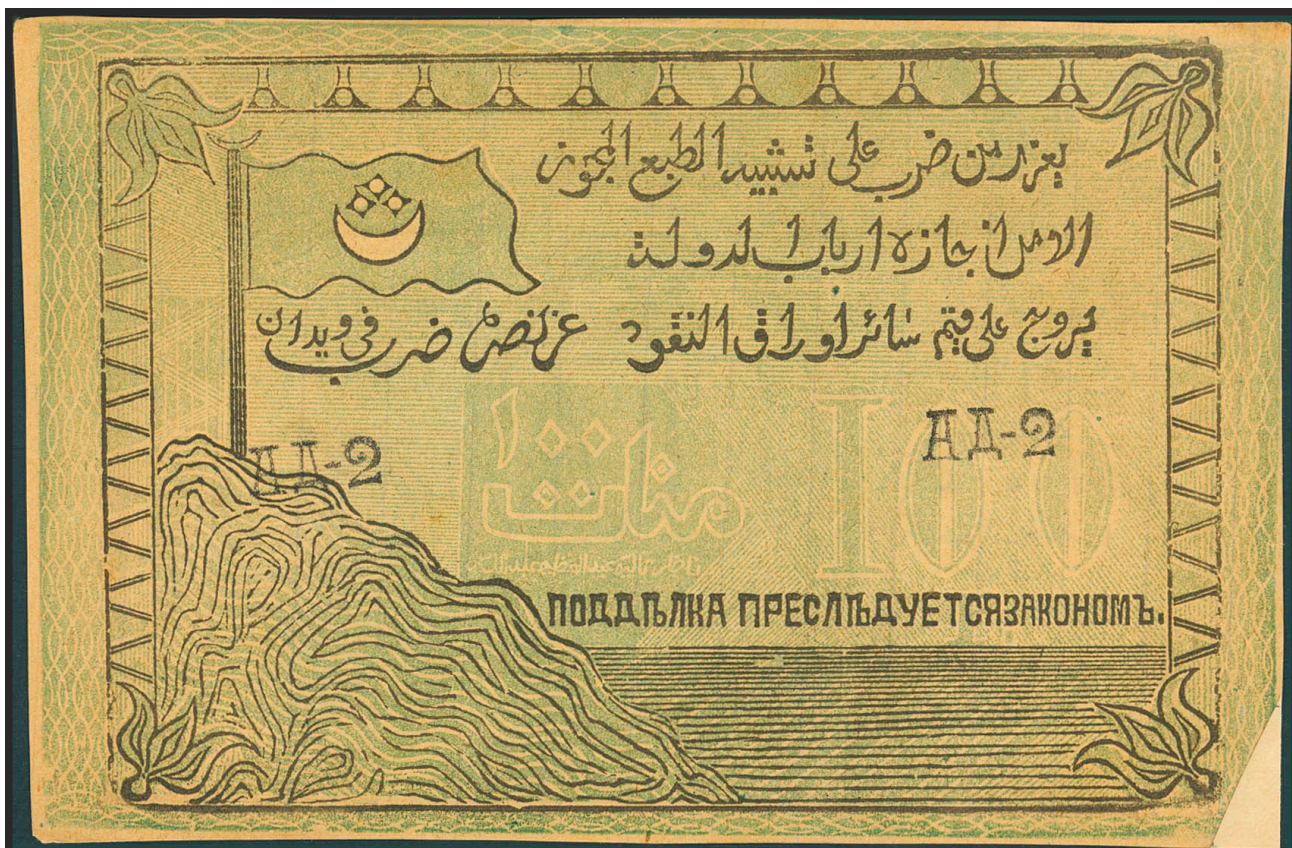 يعزر من ضرب على تشبيه الطبع المجوز
الامن اجازه ارباب الدولة
يروج على قيم سائر اوراق النقود عز نصره ضرب في ويدان
АД-2
АД-2
١٠٠
منات
100
ПОДДѢЛКА ПРЕСЛѢДУЕТСЯЗАКОНОМЪ.